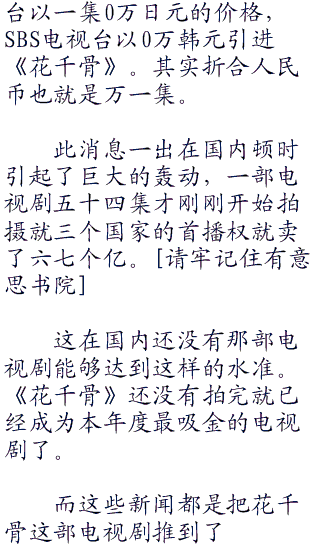 台以一集0万日元的价格，
SBS电视台以0万韩元引进
《花千骨》。其实折合人民
币也就是万一集。
此消息一出在国内顿时
引起了巨大的轰动，一部电
视剧五十四集才刚刚开始拍
摄就三个国家的首播权就卖
了六七个亿。[请牢记住有意
思书院]
这在国内还没有那部电
视剧能够达到这样的水准。
《花千骨》还没有拍完就已
经成为本年度最吸金的电视
剧了。
而这些新闻都是把花千
骨这部电视剧推到了